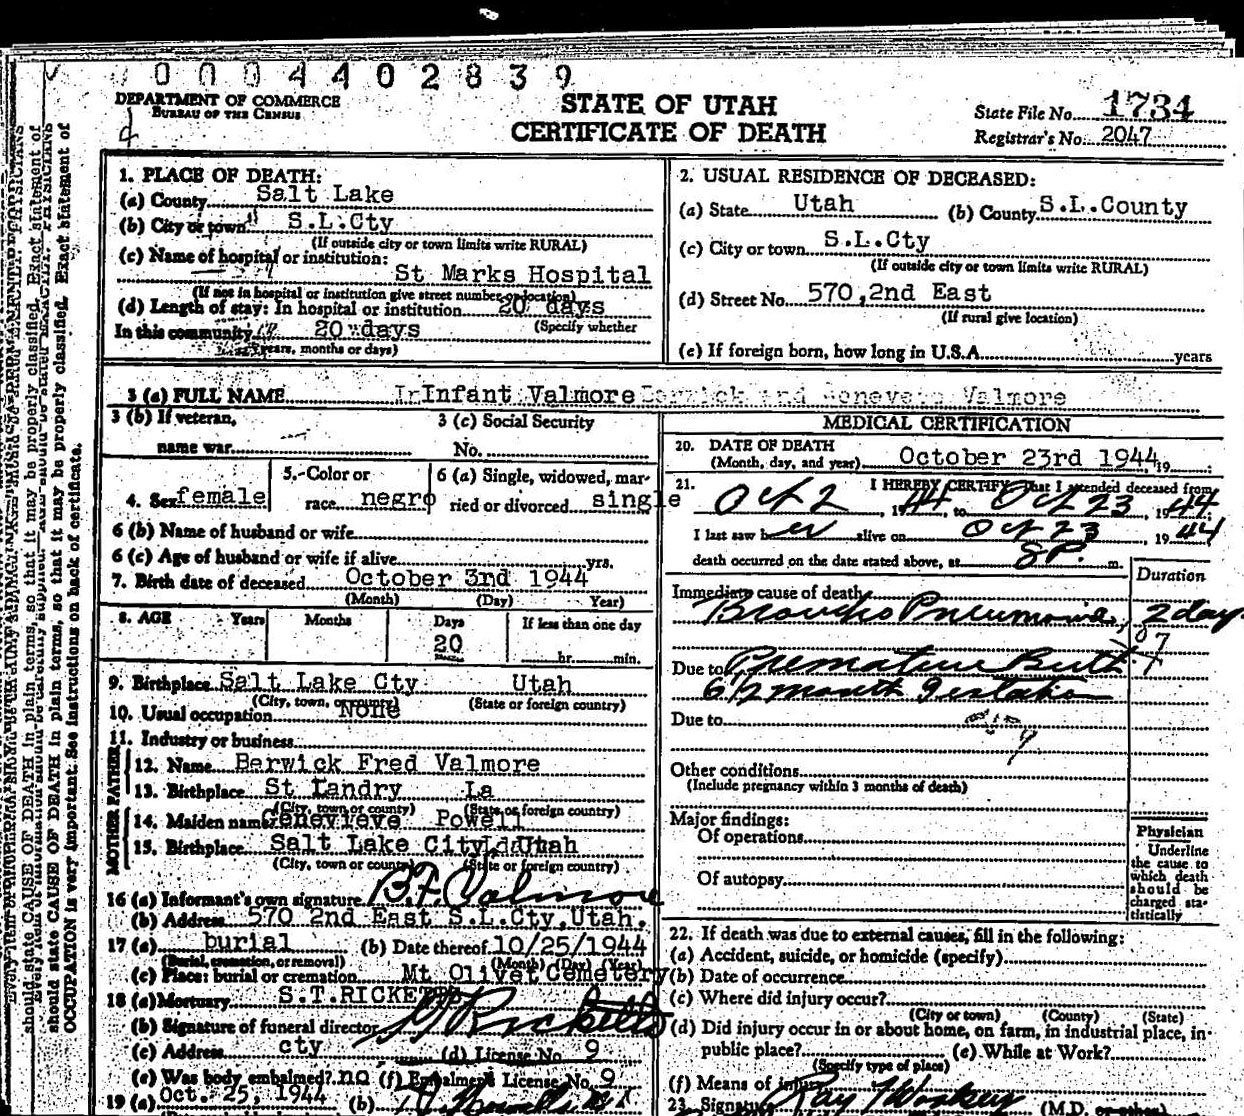 0004402839
DEPARTMENT OF COMMERCE
BUREAU OF THE CENSUS
STATE OF UTAH
CERTIFICATE OF DEATH
State File No. 1734
Registrar's No. 2047
1. PLACE OF DEATH:
(a) County Salt Lake
(b) City or town S.L.Cty
(If outside city or town limits write RURAL)
(c) Name of hospital or institution:
St Marks Hospital
(If not in hospital or institution give street number or location)
(d) Length of stay: In hospital or institution 20 days
(Specify whether
In this community 20 days
years, months or days)
2. USUAL RESIDENCE OF DECEASED:
(a) State Utah (b) County S.L.County
(c) City or town S.L.Cty
(If outside city or town limits write RURAL)
(d) Street No. 570,2nd East
(If rural give location)
(e) If foreign born, how long in U.S.A. years
3 (a) FULL NAME Infant Valmore
3 (b) If veteran, 3 (c) Social Security
name war No.
4. Sex female 5. Color or race negro 6 (a) Single, widowed, married or divorced single
6 (b) Name of husband or wife
6 (c) Age of husband or wife if alive yrs.
7. Birth date of deceased October 3nd 1944
(Month) (Day) Year)
8. AGE Years Months Days If less than one day
20 hr. min.
9. Birthplace Salt Lake Cty Utah
(City, town, or county) (State or foreign country)
10. Usual occupation None
11. Industry or business
FATHER
12. Name Berwick Fred Valmore
13. Birthplace St Landry La
(City, town or county) (State or foreign country)
MOTHER
14. Maiden name Genevieve Powell
15. Birthplace Salt Lake City Utah
(City, town or county) (State or foreign country)
16 (a) Informant's own signature B.F. Valmore
(b) Address 570 2nd East S.L.Cty,Utah.
17 (a) burial (b) Date thereof 10/25/1944
(Burial, cremation, or removal) (Month) (Day) (Year)
(c) Place: burial or cremation Mt Olivet Cemetery
18 (a) Mortuary S.T.RICKETTS
(b) Signature of funeral director Ricketts
(c) Address cty (d) License No. 9
(e) Was body embalmed? no (f) Embalmer's License No. 9
19 (a) Oct. 25, 1944 (b)
MEDICAL CERTIFICATION
20. DATE OF DEATH
(Month, day, and year) October 23rd 1944, 19
21. I HEREBY CERTIFY That I attended deceased from
Oct 2, 1944, to Oct 23, 1944;
I last saw her alive on Oct 23, 1944
death occurred on the date stated above, at 8P. m.
Duration
Immediate cause of death
Broncho Pneumonia, 2 days
107
Due to Premature Birth
6 1/2 month gestation
Due to
Other conditions
(Include pregnancy within 3 months of death)
Major findings:
Of operations
Of autopsy
Physician
Underline
the cause to
which death
should be
charged sta-
tistically
22. If death was due to external causes, fill in the following:
(a) Accident, suicide, or homicide (specify)
(b) Date of occurrence
(c) Where did injury occur?
(City or town) (County) (State)
(d) Did injury occur in or about home, on farm, in industrial place, in
public place? (e) While at Work?
(Specify type of place)
(f) Means of injury
23. Signature Ray T Woolsey (M.D. or other)
should state CAUSE OF DEATH in plain terms, so that it may be properly classified. Exact statement of
OCCUPATION is very important. See instructions on back of certificate.